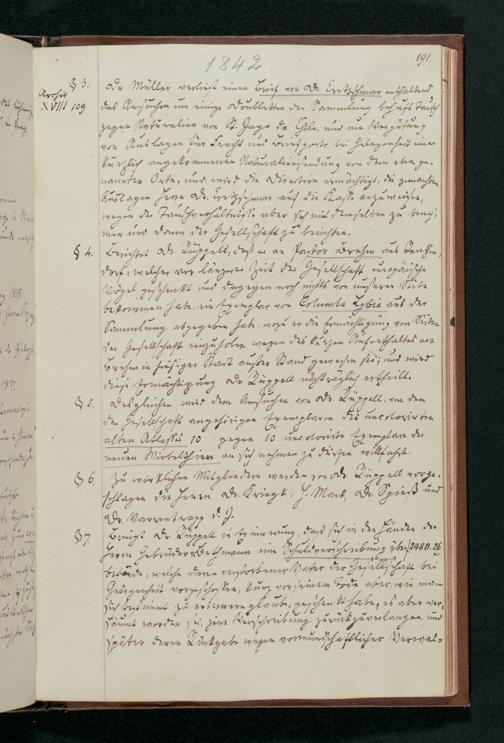 1842
191.
Archiv
XVIII 109
§ 3. Dr. Müller verliest einen Brief von Dr. Kretzschmar enthaltend
das Ansuchen um einige Doubletten der Sammlung behufs Tausch
gegen Naturalien von St. Jago de Chile, und um Vergütung
von Auslagen für Fracht und Transport bei Gelegenheit einer
kürzlich angekommenen Naturaliensendung von dem eben ge-
nannten Orte, und wird die Direction ermächtigt, die gemachten
Auslagen Herrn Dr. Kretzschmar auf die Kasse anzuweisen,
wegen der Tauschverhältnisse aber sich mit demselben zu
und dann der Gesellschaft zu berichten.
§ 4. Berichtet Dr. Rüppell, daß er an Pastor Brehm aus
dorf, welcher vor längerer Zeit der Gesellschaft europäische
Vögel geschenkt und dagegen noch nichts von unserer Seite
bekommen habe, ein Exemplar von Columba Lybia aus der
Sammlung abgegeben habe, wozu er die Ermächtigung von Seiten
der Gesellschaft wegen des kurzen Aufenthaltes von
Brehm in hiesiger Stadt außer Stand gewesen sei; und wird
diese Ermächtigung Dr. Rüppell nachträglich ertheilt.
§ 5. Desgleichen wird dem Ansuchen von Dr. Rüppell, von den
der Gesellschaft angehörigen Exemplaren des uncolorirten
alten Atlasses 10 gegen 10 uncolorirte Exemplare der
neuen Wirbelthiere an sich nehmen zu dürfen willfahrt.
§ 6. Zu wirklichen Mitgliedern werden von Dr. Rüppell vorge-
schlagen die Herrn Dr. Kriegk, H. Mack, Dr. Spieß und
Dr. Varrentrapp d. J.
§ 7. Bringt Dr. Rüppell in Erinnerung, daß sich in den Händen der
Herrn Gebrüder Bethmann eine Schuldverschreibung über f 3480. 26
befinde, welche deren verstorbener Vater der Gesellschaft bei
Gelegenheit vorgeschossen, kurz vor seinem Tode aber, wie man
sich bestimmt zu erinnern glaubt, geschenkt habe, es aber ver-
säumt worden sei, jene Verschreibung zurückzuverlangen, und
später deren Rückgabe wegen vormundschaftlicher Verwal-